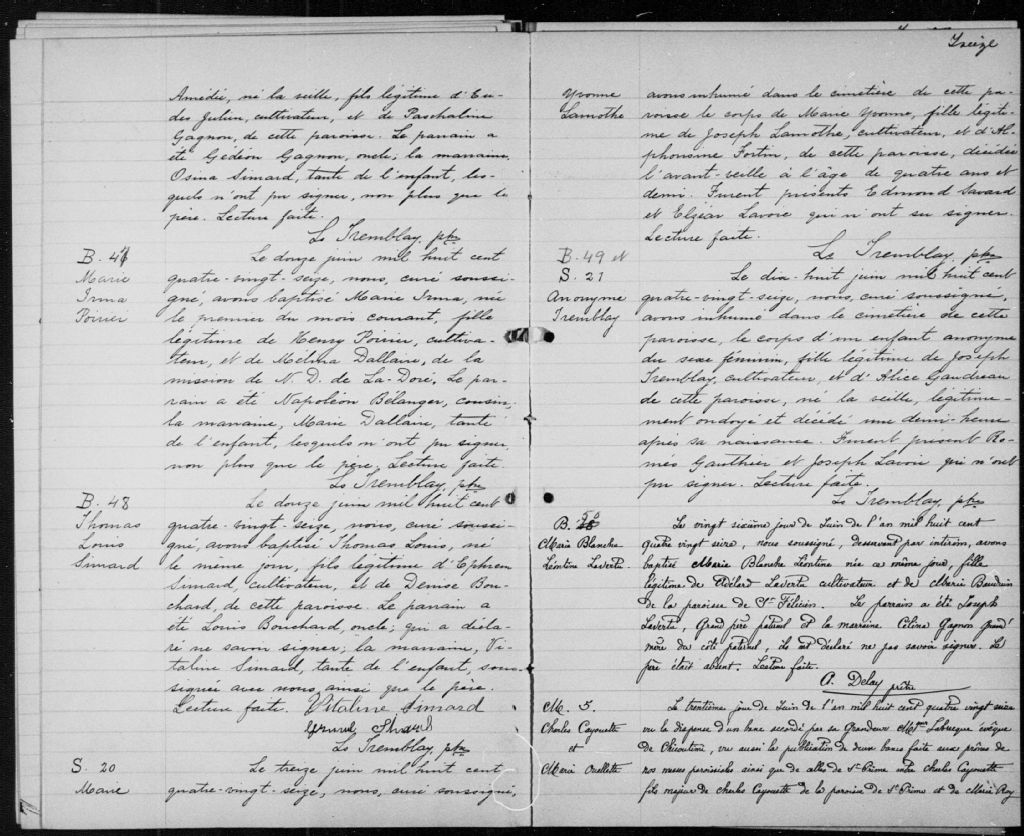 Amédée, né la veille, fils légitime d'Eu-
des Jutra, cultivateur, et de Paschaline
Gagnon, de cette paroisse. Le parrain a
été Gédéon Gagnon, oncle; la marraine,
Osina Simard, tante de l'enfant, les-
quels n'ont pu signer, non plus que le
père. Lecture faite.
Ls Tremblay, ptre
B. 47
Marie
Irma
Poirier
Le douze juin mil huit cent
quatre-vingt-seize, nous, curé soussi-
gné, avons baptisé Marie Irma, née
le premier du mois courant, fille
légitime de Henry Poirier, cultiva-
teur, et de Melina Dallaire, de la
mission de N. D. de La-Doré. Le par-
rain a été Napoléon Bélanger, cousin,
la marraine, Marie Dallaire, tante
de l'enfant, lesquels n'ont pu signer
non plus que le père, Lecture faite.
Ls Tremblay, ptre
B. 48
Thomas
Louis
Simard
Le douze juin mil huit cent
quatre-vingt-seize, nous, curé soussi-
gné, avons baptisé Thomas Louis, né
le même jour, fils légitime d'Ephrem
Simard, cultivateur, et de Denise Bou-
chard, de cette paroisse. Le parrain a
été Louis Bouchard, oncle, qui a décla-
ré ne savoir signer; la marraine, Vi-
taline Simard, tante de l'enfant, sous-
signée avec nous ainsi que le père.
Lecture faite. Vitaline Simard
Ls Tremblay, ptre
S. 20
Marie
Le treize juin mil huit cent
quatre-vingt-seize, nous, curé soussigné,
Treize
Yvonne
Lamothe
avons inhumé dans le cimetière de cette pa-
roisse le corps de Marie Yvonne, fille légiti-
me de Joseph Lamothe, cultivateur, et d'Al-
phonsine Fortin, de cette paroisse, décédée
l'avant-veille à l'âge de quatre ans et
demi. Furent présents Edmond Savard
et Elzéar Lavoie qui n'ont su signer.
Lecture faite.
Ls Tremblay, ptre
B. 49 et
S. 21
Anonyme
Tremblay
Le dix-huit juin mil huit cent
quatre-vingt-seize, nous, curé soussigné,
avons inhumé dans le cimetière de cette
paroisse, le corps d'un enfant anonyme
du sexe féminin, fille légitime de Joseph
Tremblay, cultivateur, et d'Alice Gaudreau
de cette paroisse, né la veille, légitime-
ment ondoyé et décédé une demi-heure
après sa naissance. Furent présent Ro-
méo Gauthier et Joseph Lavoie qui n'ont
pu signer. Lecture faite.
Ls Tremblay, ptre
B. 50
Marie Blanche
Léontine Laverta
Le vingt sixième jour de Juin de l'an mil huit cent
quatre vingt seize, nous soussigné, desservant par interim, avons
baptisé Marie Blanche Léontine née ce même jour, fille
légitime de Adélard Laverta cultivateur et de Marie Baudoin
de la paroisse de St Félicien. Le parrain a été Joseph
Laverta, Grand père paternel et la marraine Célina Gagnon grand'
mère du coté paternel, ils ont déclaré ne pas savoir signer. Le
père était absent. Lecture faite.
A. Delay
prêtre
M. 5.
Charles Cayouette
et
Marie Ouellette
Le trentième jour de Juin de l'an mil huit cent quatre vingt seize
vu la dispense d'un banc accordé par sa Grandeur Mgr Labrecque évêque
de Chicoutimi, vu aussi la publication de deux bancs faite aux prônes de
nos messes paroissiales ainsi que de celles de St Prime entre Charles Cayouette
fils majeur de Charles Cayouette de la paroisse de St Prime et de Marie Roy